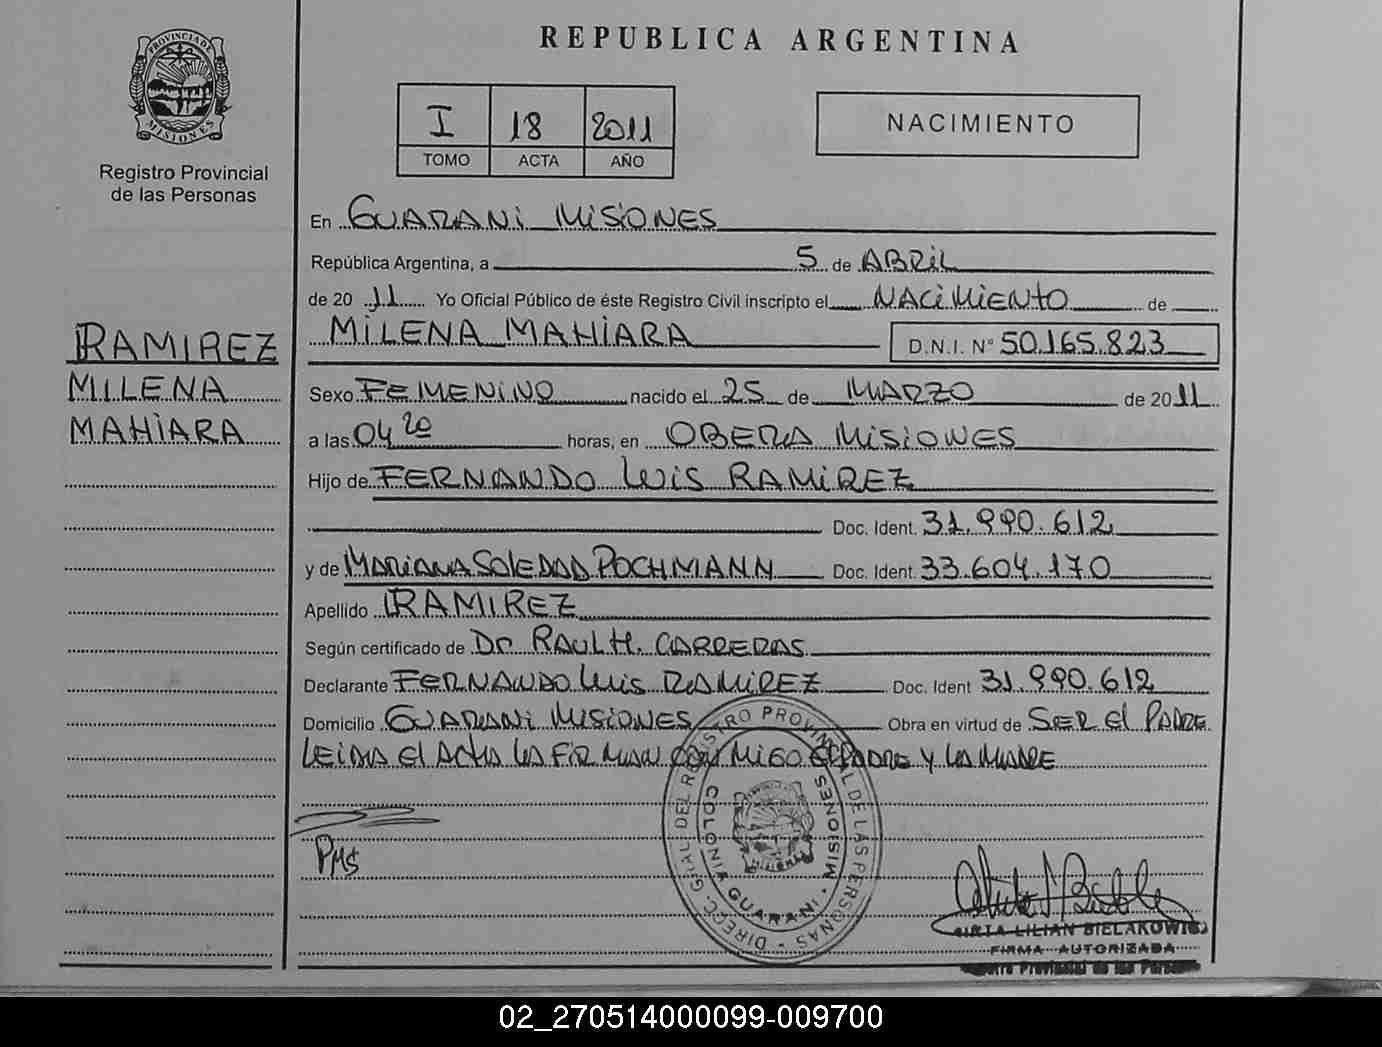 PROVINCIA DE
MISIONES
Registro Provincial
de las Personas
RAMIREZ
MILENA
MAHIARA
REPUBLICA ARGENTINA
I 18 2011
TOMO ACTA AÑO
NACIMIENTO
En GUARANI MISIONES
República Argentina, a 5 de ABRIL
de 20 11 Yo Oficial Público de éste Registro Civil inscripto el NACIMIENTO de
MILENA MAHIARA D.N.I. N° 50.165.823
Sexo FEMENINO nacido el 25 de MARZO de 2011
a las 04 20 horas, en OBERA MISIONES
Hijo de FERNANDO LUIS RAMIREZ
Doc. Ident. 31.990.612
y de MARIANA SOLEDAD POCHMANN Doc. Ident. 33.604.170
Apellido RAMIREZ
Según certificado de Dr RAUL H. CARRERAS
Declarante FERNANDO LUIS RAMIREZ Doc. Ident 31.990.612
Domicilio GUARANI MISIONES Obra en virtud de SER El PADRE
LEIDA El ACTA LA FIRMAN CONMIGO El PADRE Y LA MADRE
DIRECC. GRAL DEL REGISTRO PROVINCIAL DE LAS PERSONAS
COLONIA GUARANI - MISIONES
PMS
MIRTA LILIAN BIELAKOWICZ
FIRMA AUTORIZADA
Registro Provincial de las Personas
02_270514000099-009700